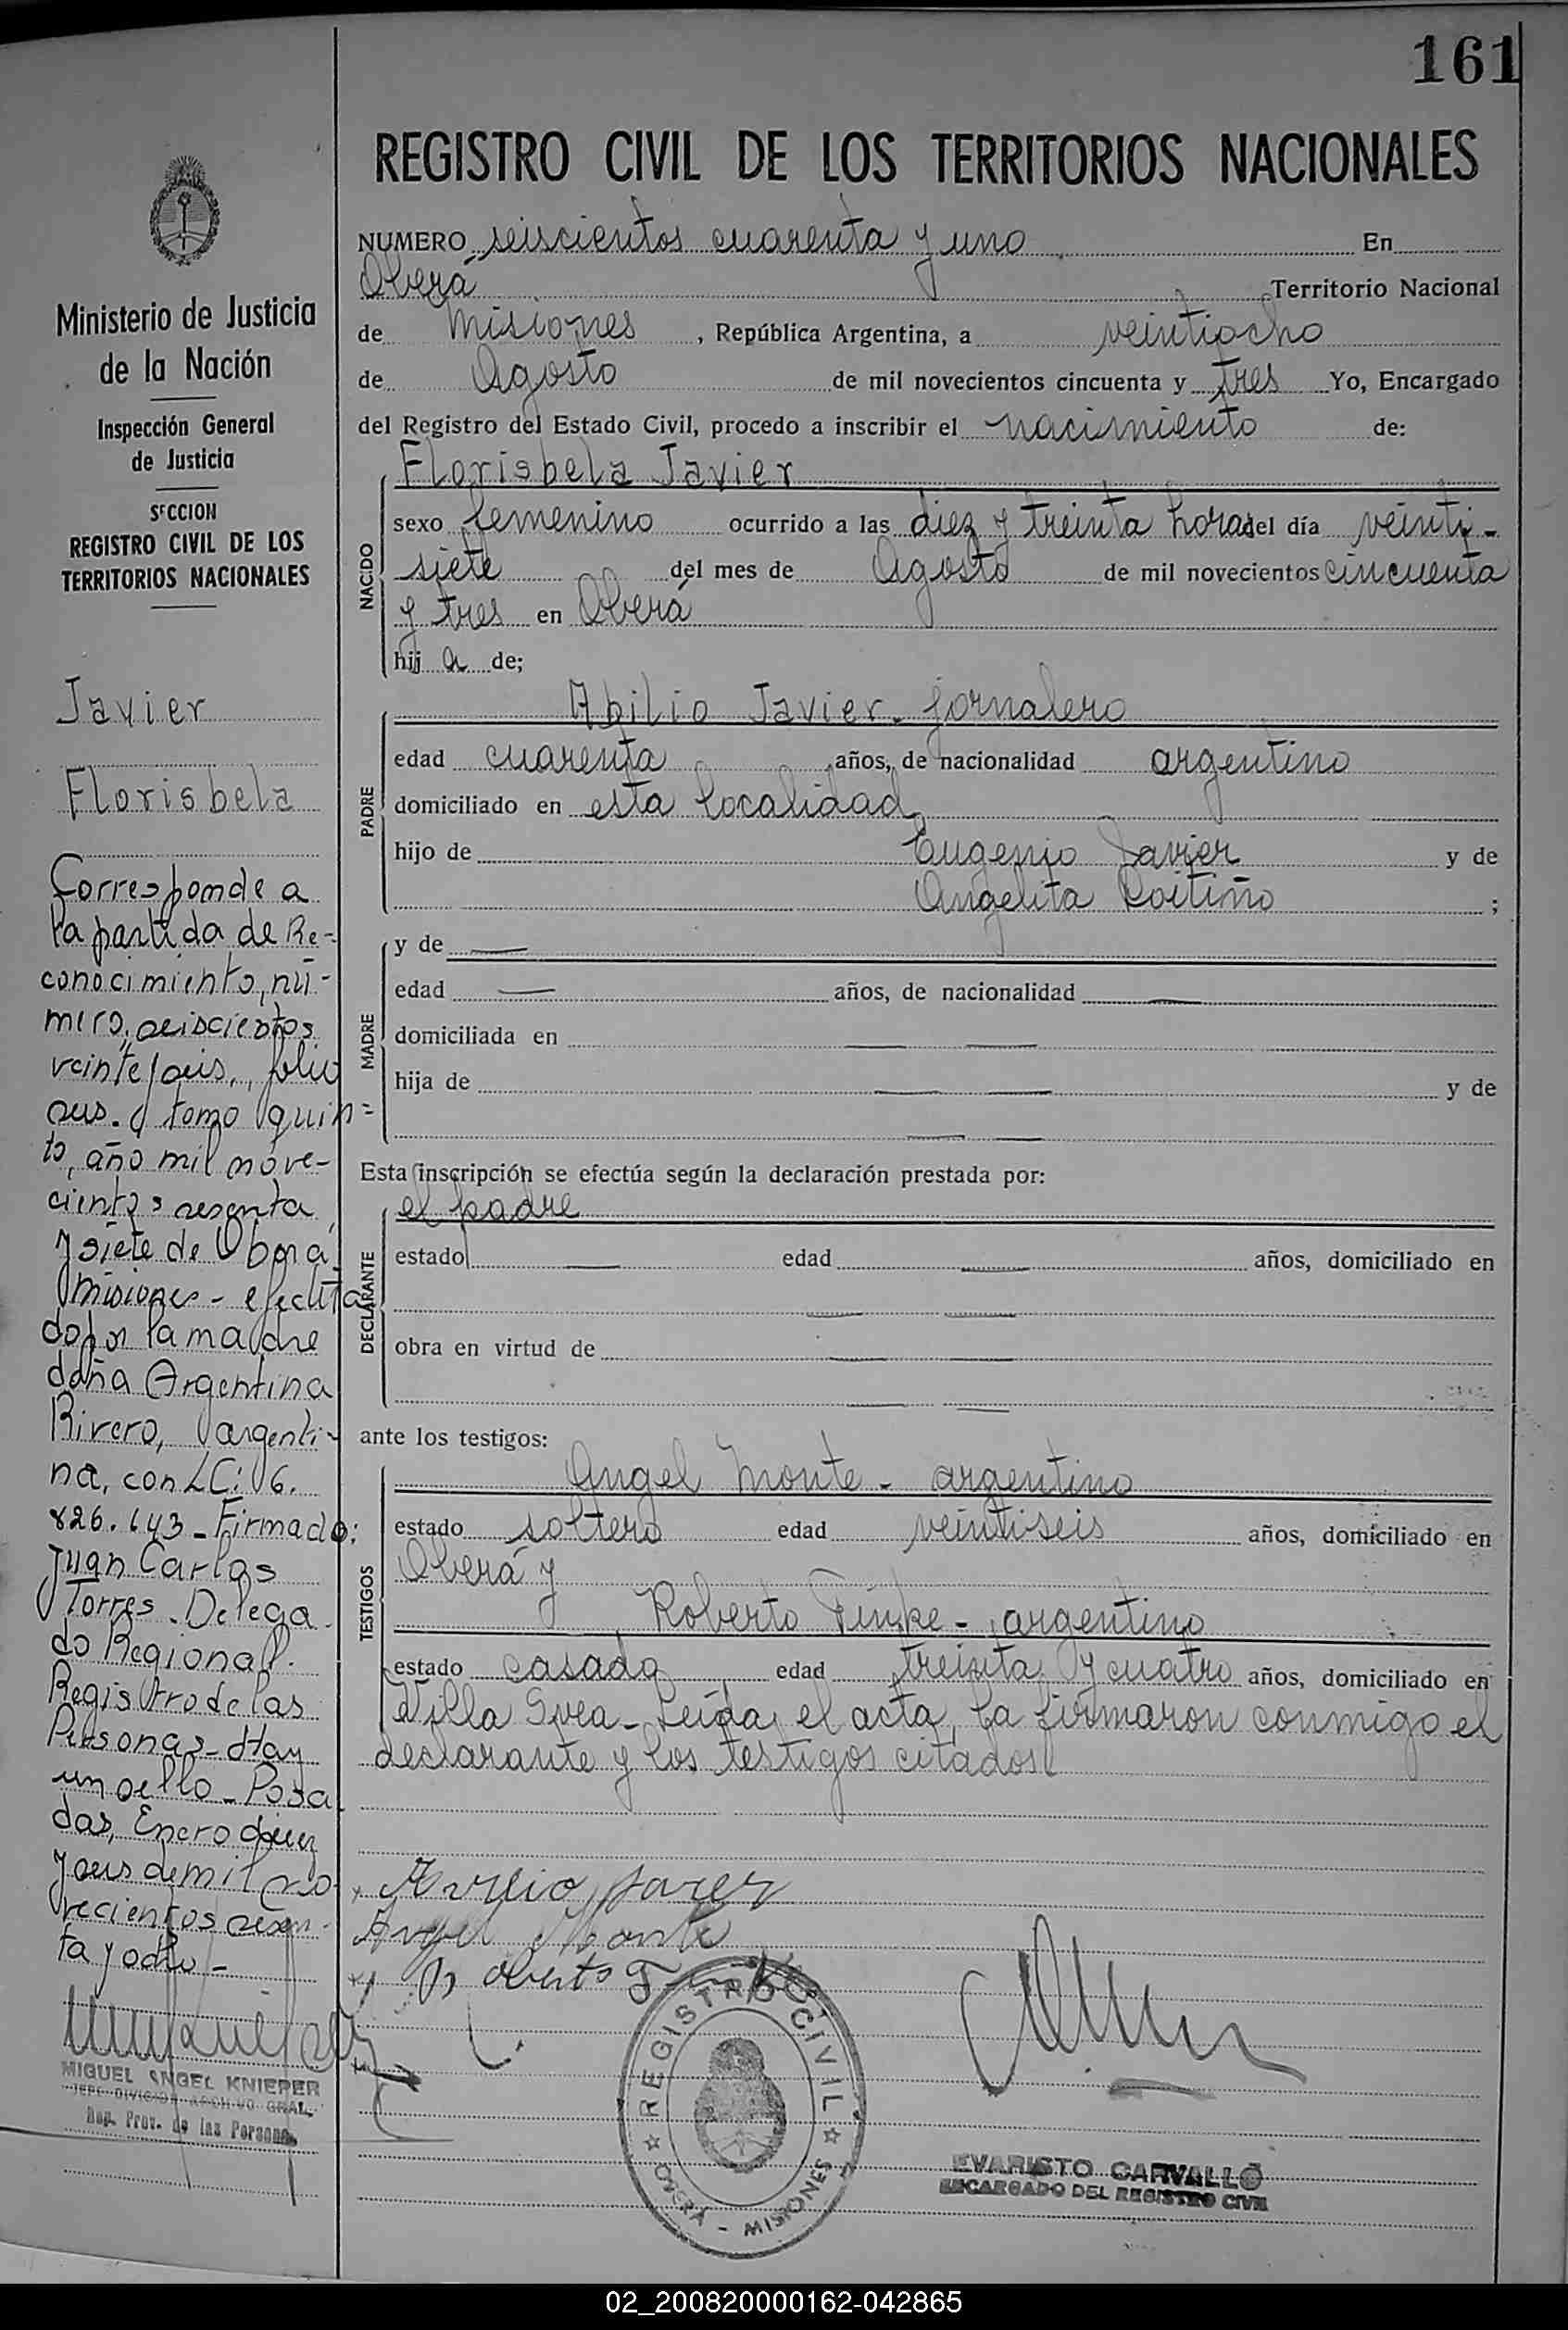 161
REGISTRO CIVIL DE LOS TERRITORIOS NACIONALES
NUMERO seiscientos cuarenta y uno En
Oberá Territorio Nacional
de Misiones, República Argentina, a veintiocho
de Agosto de mil novecientos cincuenta y tres Yo, Encargado
del Registro del Estado Civil, procedo a inscribir el nacimiento de:
NACIDO
Florisbela Javier
sexo femenino ocurrido a las diez y treinta horas del día veinti-
siete del mes de Agosto de mil novecientos cincuenta
y tres en Oberá
hij a de;
PADRE
Abilio Javier - jornalero
edad cuarenta años, de nacionalidad argentino
domiciliado en esta localidad
hijo de Eugenio Javier y de
Angelita Poitiño ;
MADRE
y de —
edad — años, de nacionalidad —
domiciliada en — —
hija de — — y de
— —
Esta inscripción se efectúa según la declaración prestada por:
DECLARANTE
el padre
estado — edad — años, domiciliado en
— —
obra en virtud de — —
— —
ante los testigos:
TESTIGOS
Angel Monte - argentino
estado soltero edad veintiseis años, domiciliado en
Oberá y
Roberto Finke - argentino
estado casado edad treinta y cuatro años, domiciliado en
Villa Svea - Leída el acta, la firmaron conmigo el
declarante y los testigos citados
Angel Monte
Roberto
REGISTRO CIVIL
OBERÁ - MISIONES
EVARISTO CARVALLO
ENCARGADO DEL REGISTRO CIVIL
Ministerio de Justicia
de la Nación
Inspección General
de Justicia
SECCION
REGISTRO CIVIL DE LOS
TERRITORIOS NACIONALES
Javier
Florisbela
Corresponde a
la partida de Re-
conocimiento, nú-
mero, seiscientos
veinteseis, folio
seis. tomo quin=
to, año mil nove-
cientos sesenta
y siete de Oberá
Misiones - efectua
do por la madre
doña Argentina
Rivero, argenti-
na, con LC: 6.
826.643 - Firmado:
Juan Carlos
Torres. Delega
do Regional.
Registro de las
Personas - Hay
un sello - Posa
das, Enero diez
y seis de mil no
vecientos sesen-
ta y ocho -
MIGUEL ANGEL KNIEPER
JEFE DIVISION ARCHIVO GRAL.
Reg. Prov. de las Personas
02_200820000162-042865